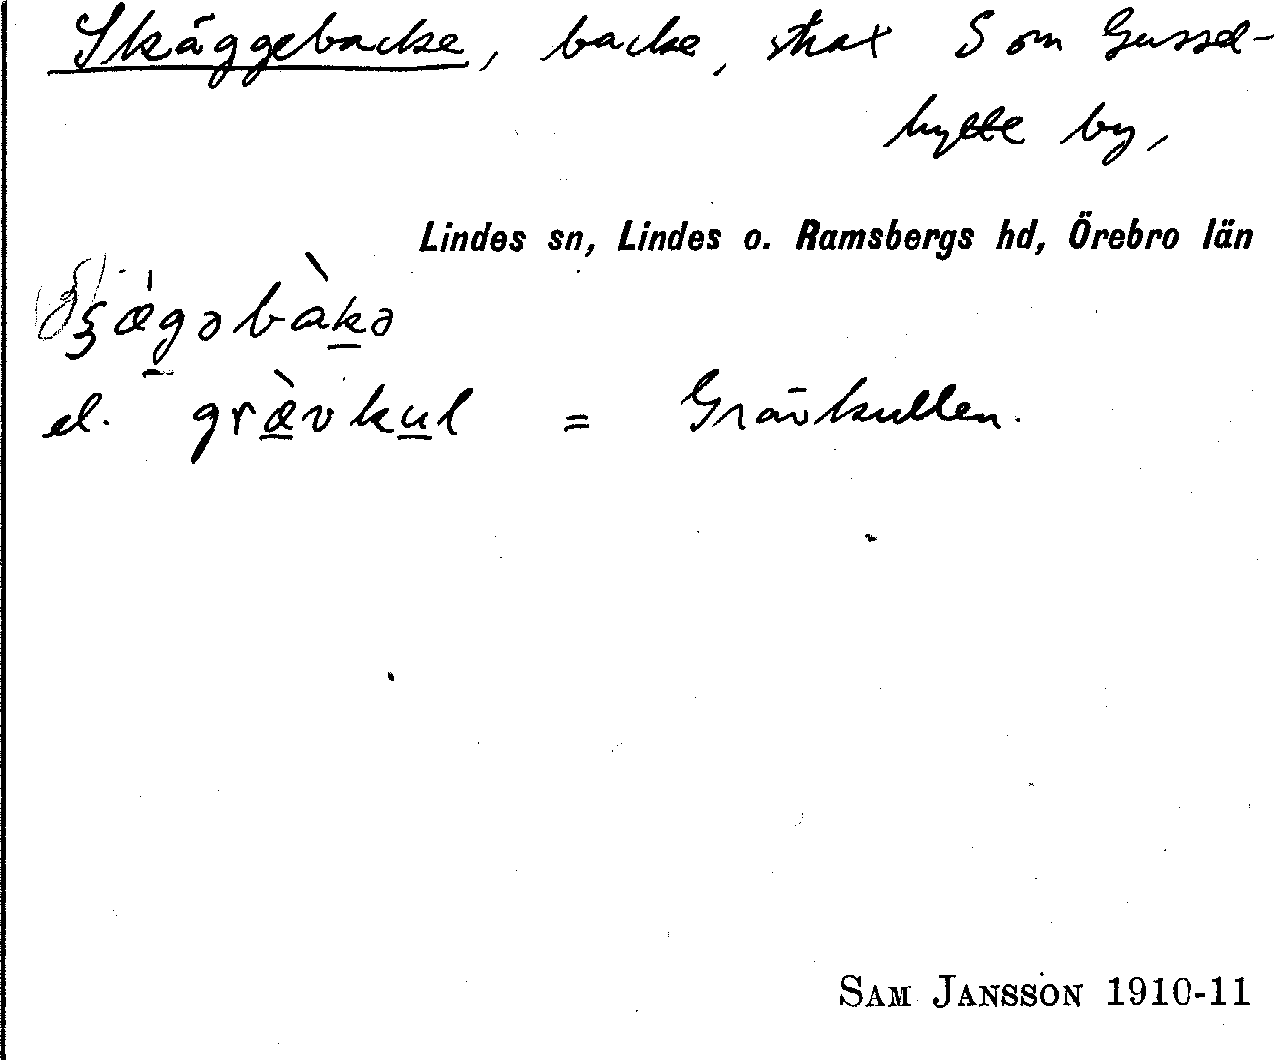 Skäggebacke, backe, strax S om Gussel-
hytte by,
Lindes sn, Lindes o. Ramsbergs hd, Örebro län
ʂæ̀gəbàkə
el. græ̀vkul = Grävkullen.
SAM JANSSON 1910-11